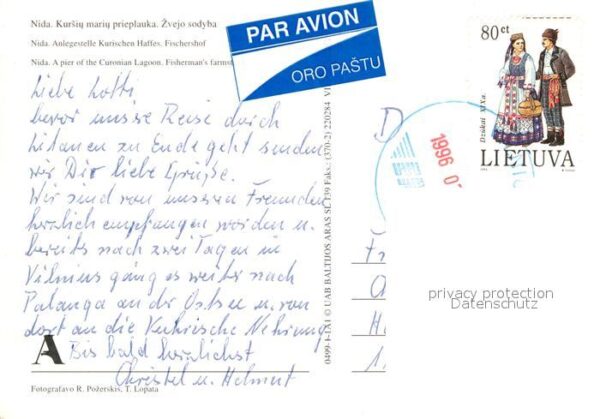 Nida. Kuršių marių prieplauka. Žvejo sodyba
Nida. Anlegestelle Kurischen Haffes. Fischershof
Nida. A pier of the Curonian Lagoon. Fisherman's farmst
PAR AVION
ORO PAŠTU
80 ct
Dzūkai XIXa.
LIETUVA
1996
Liebe Lotti
bevor unsere Reise durch
Litauen zu Ende geht senden
wir Dir liebe Grüße.
Wir sind von unseren Freunden
herzlich empfangen worden u.
bereits nach zwei Tagen in
Vilnius ging es weiter nach
Palanga an der Ostsee u. von
dort an die Kuhrische Nehrung
Bis bald herzlichst
Christel u. Helmut
D
privacy protection
Datenschutz
A
0499-1-1A1 © UAB BALTIJOS ARAS SL 139 Faks.: (370-2) 220284
Fotografavo R. Požerskis, T. Lopata